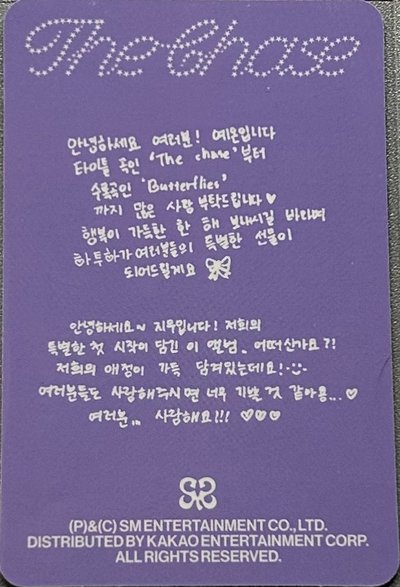 The Chase
안녕하세요 여러분! 예온입니다
타이틀 곡인 'The chase'부터
수록곡인 'Butterflies'
까지 많은 사랑 부탁드립니다♥
행복이 가득한 한 해 보내시길 바라며
하투하가 여러분들의 특별한 선물이
되어드릴게요
안녕하세요~ 지우입니다! 저희의
특별한 첫 시작이 담긴 이 앨범.. 어떠신가요?!
저희의 애정이 가득 담겨있는데요!
여러분들도 사랑해주시면 너무 기쁠 것 같아용...♡
여러분.. 사랑해요!!! ♡♡♡
(P)&(C) SM ENTERTAINMENT CO., LTD.
DISTRIBUTED BY KAKAO ENTERTAINMENT CORP.
ALL RIGHTS RESERVED.